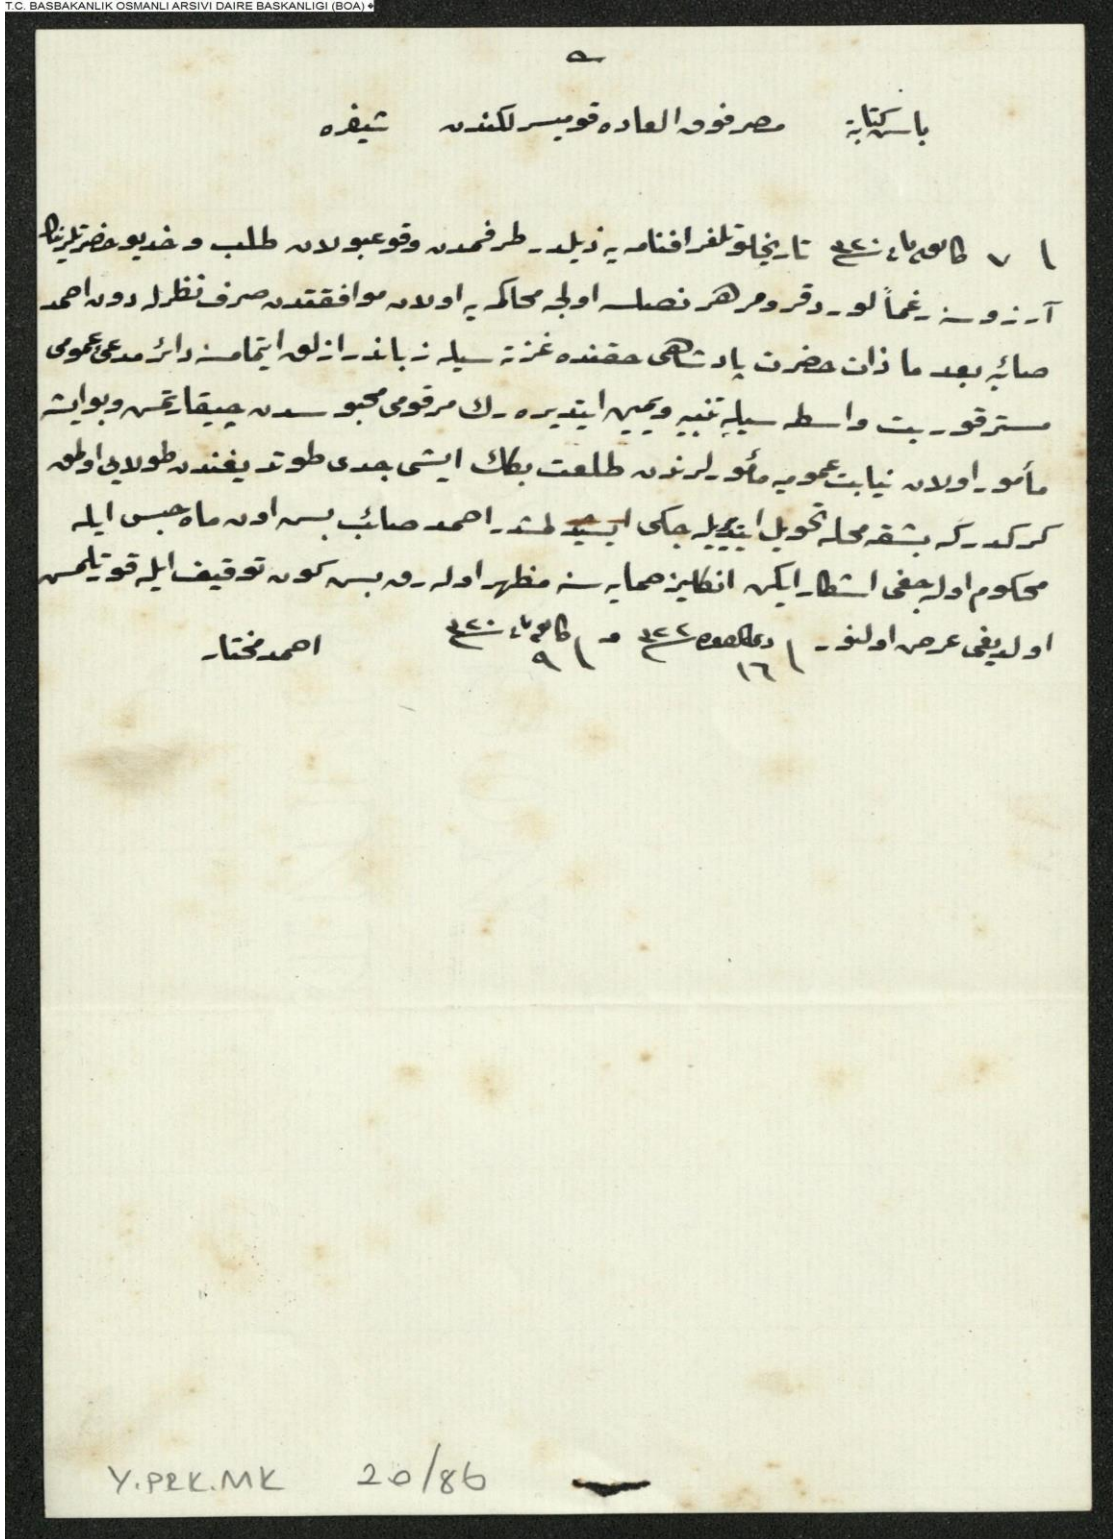 T.C. BASBAKANLIK OSMANLI ARSIVI DAIRE BASKANLIGI (BOA)
باش كتابته مصر فوق العاده قوميسرلكندن شيفره
٧ كانون ثانی ٣٢٠ تاريخلو تلغرافنامه يه ذيلدر طرفمدن وقوعبولان طلب و خديو حضرتلرينك
آرزوسنه رغماً لورد قرومر هر نصلسه اولجه محاكمه يه اولان موافقتدن صرف نظرله دون احمد
صائبه بعد ما ذات حضرت پادشاهی حقنده غزته سيله زباندرازلق ايتمامسنه دائر مدعی عمومی
مستر قوربت واسطه سيله تنبيه ويمين ايتديره رك مرقومی محبوسدن چيقارتمش وبو ايشه
مأمور اولان نيابت عموميه مأمورلرندن طلعت بكك ايشی جدی طوتديغندن طولايی اولمق
كركدركه بشقه محله تحويل ايتديريله جكی ايشيدلمشدر احمد صائب بش اون ماه حبس ايله
محكوم اوله جغی آشكار ايكن انكليز حمايه سنه مظهر اوله رق بش كون توقيف ايله قورتلمش
اولديغی عرض اولنور ١٦ ذی القعده ٣٢٢ و ٩ كانون ثانی ٣٢٠ احمد مختار
Y.PRK.MK 20/86